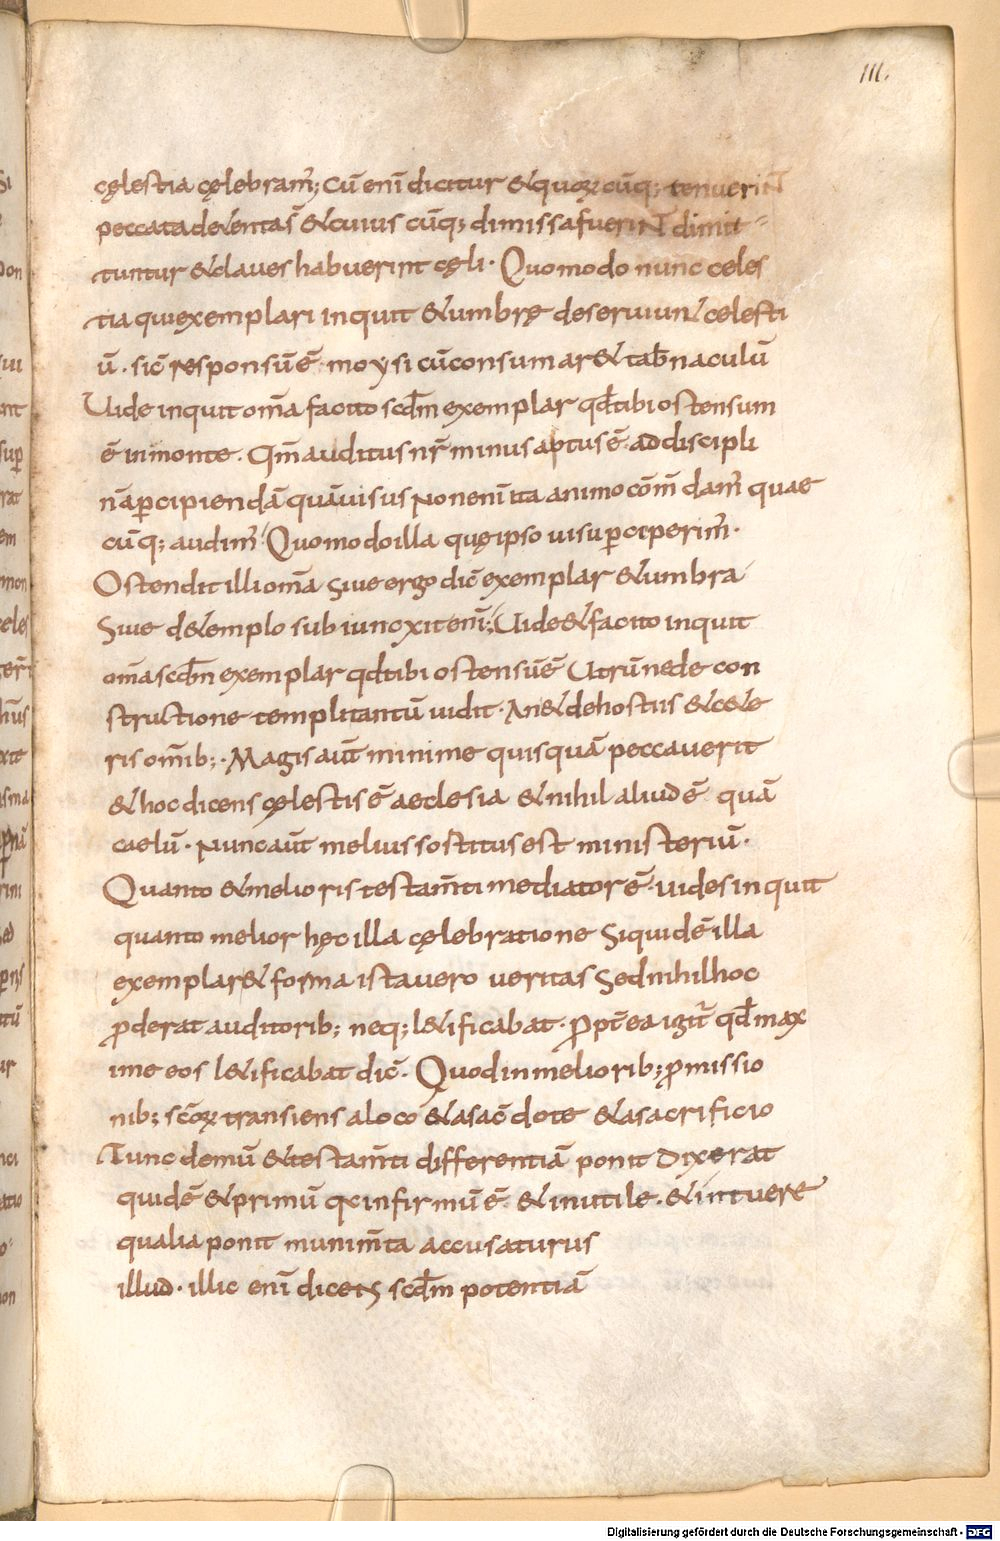 III.
cęlestia cęlebram᷒; Cū enī dicitur &quoꝝ cūq; tenuerint
peccata detentas̄ &cuius cūq; dimissa fuerint dimit-
tuntur &claues habuerint cęli· Quomodo nunc celes
tia qui exemplari inquit &umbrę deseruiunt celesti
ū· sic̄ responsū ē moysi cū consummar& tab̄naculū
Uide inquit om̄a facito scd̄m exemplar qd̄ tibi ostensum
ē in monte. Qm̄ auditus nr̄ minus aptus ē addiscipli
nā ꝑcipiendā quā uisus Non enī ita animo com̄dam᷒ quae
cūq; audim᷒ Quomodo illa quę ipso uisu ꝑceperim᷒·
Ostendit illi om̄a siue ergo dic̄ exemplar &umbra
Siue detemplo subiuncxit enī; Uide &facito inquit
om̄a scd̄m exemplar qd̄ tibi ostensū ē Utrū nede con
structione templi tantū uidit· An& dehostiis &cete
ris om̄ib;· Magis aūt minime quisquā peccauerit
&hoc dicens cęlestis ē aeclesia &nihil aliud ē quā
caelū· Nunc aūt melius sostitus est ministeriū·
Quanto &melioris testam̄ti mediator ē· uides inquit
quanto melior hęc illa cęlebratione Siquidē illa
exemplar &forma ista uero ueritas Sed nihil hoc
ꝓderat auditorib; neq; l&ificabat· Ppt̄ ea igit᷒ qd̄ max
ime eos l&ificabat dic̄· Quod in meliorib; ꝓmissio
nib; sc̄oꝝ transiens a loco &asac̄dote &asacrificio
Tunc demū &testam̄ti differentiā ponit Dixerat
quidē &primū qx infirmū ē &inutile· &intuere
qualia ponit munim̄ta accusaturus
illud· illic enī dicens scd̄m potentiā
Digitalisierung gefördert durch die Deutsche Forschungsgemeinschaft - DFG